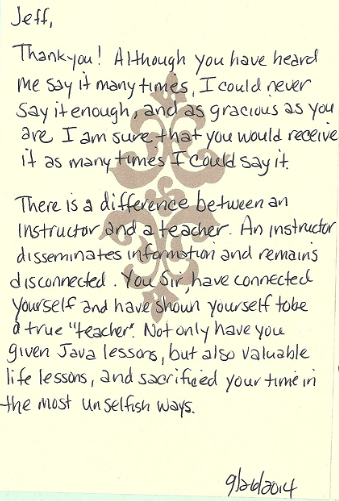 Jeff,
Thank you! Although you have heard
me say it many times, I could never
say it enough, and as gracious as you
are I am sure that you would receive
it as many times I could say it.
There is a difference between an
Instructor and a teacher. An instructor
disseminates information and remains
disconnected. You Sir, have connected
yourself and have shown yourself to be
a true "teacher". Not only have you
given Java lessons, but also valuable
life lessons, and sacrificed your time in
the most unselfish ways.
9/26/2014